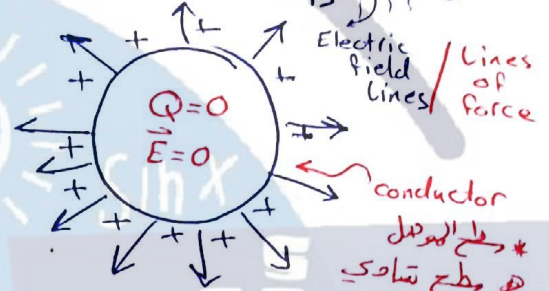 Electric
field
lines
/ Lines
of
force
Q=0
E=0
conductor
* سطح الموصل
هو سطح تساوي
sin X